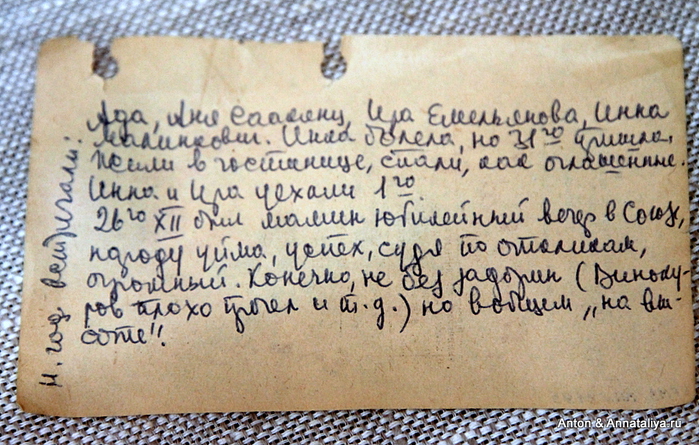 Н. год встречали:
Ада, Аня Саакянц, Ира Емельянова, Инна
Малинкович. Инна болела, но 31го пришла,
жили в гостинице, спали, как оглашенные.
Инна и Ира уехали 1го.
26го XII был мамин юбилейный вечер в Союзе,
народу уйма, успех, судя по откликам,
огромный. Конечно, не без задорин (Виноку-
ров плохо прочел и т.д.) но в общем „на вы-
соте"!
Anton & Annataliya·ru